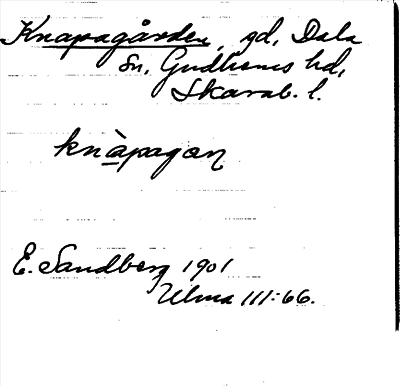 Knapagården, gd, Dala
sn, Gudhems hd,
Skarab. l.
knàpagan
E. Sandberg 1901
Ulma 111:66.